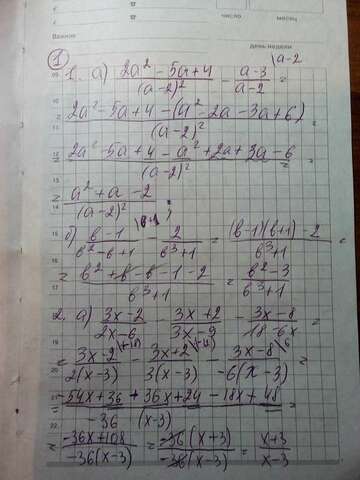 число месяц
Важное день недели
1
1. а) (2a² - 5a + 4)/(a-2)² - (a-3)/(a-2) \a-2 =
(2a² - 5a + 4 - (a² - 2a - 3a + 6))/(a-2)² =
= (2a² - 5a + 4 - a² + 2a + 3a - 6)/(a-2)² =
= (a² + a - 2)/(a-2)² ;
б) (в-1)/(в² - в + 1) \в+1 - 2/(в³+1) = ((в-1)(в+1) - 2)/(в³+1)
= (в² + в - в - 1 - 2)/(в³+1) = (в² - 3)/(в³+1)
2. а) (3x-2)/(2x-6) - (3x+2)/(3x-9) - (3x-8)/(18-6x) =
= (3x-2)/(2(x-3)) - (3x+2)/(3(x-3)) - (3x-8)/(-6(x-3)) \6
= (-54x + 36 + 36x + 24 - 18x + 48)/(-36 (x-3)) =
(-36x + 108)/(-36(x-3)) = (-36(x+3))/(-36(x-3)) = (x+3)/(x-3)